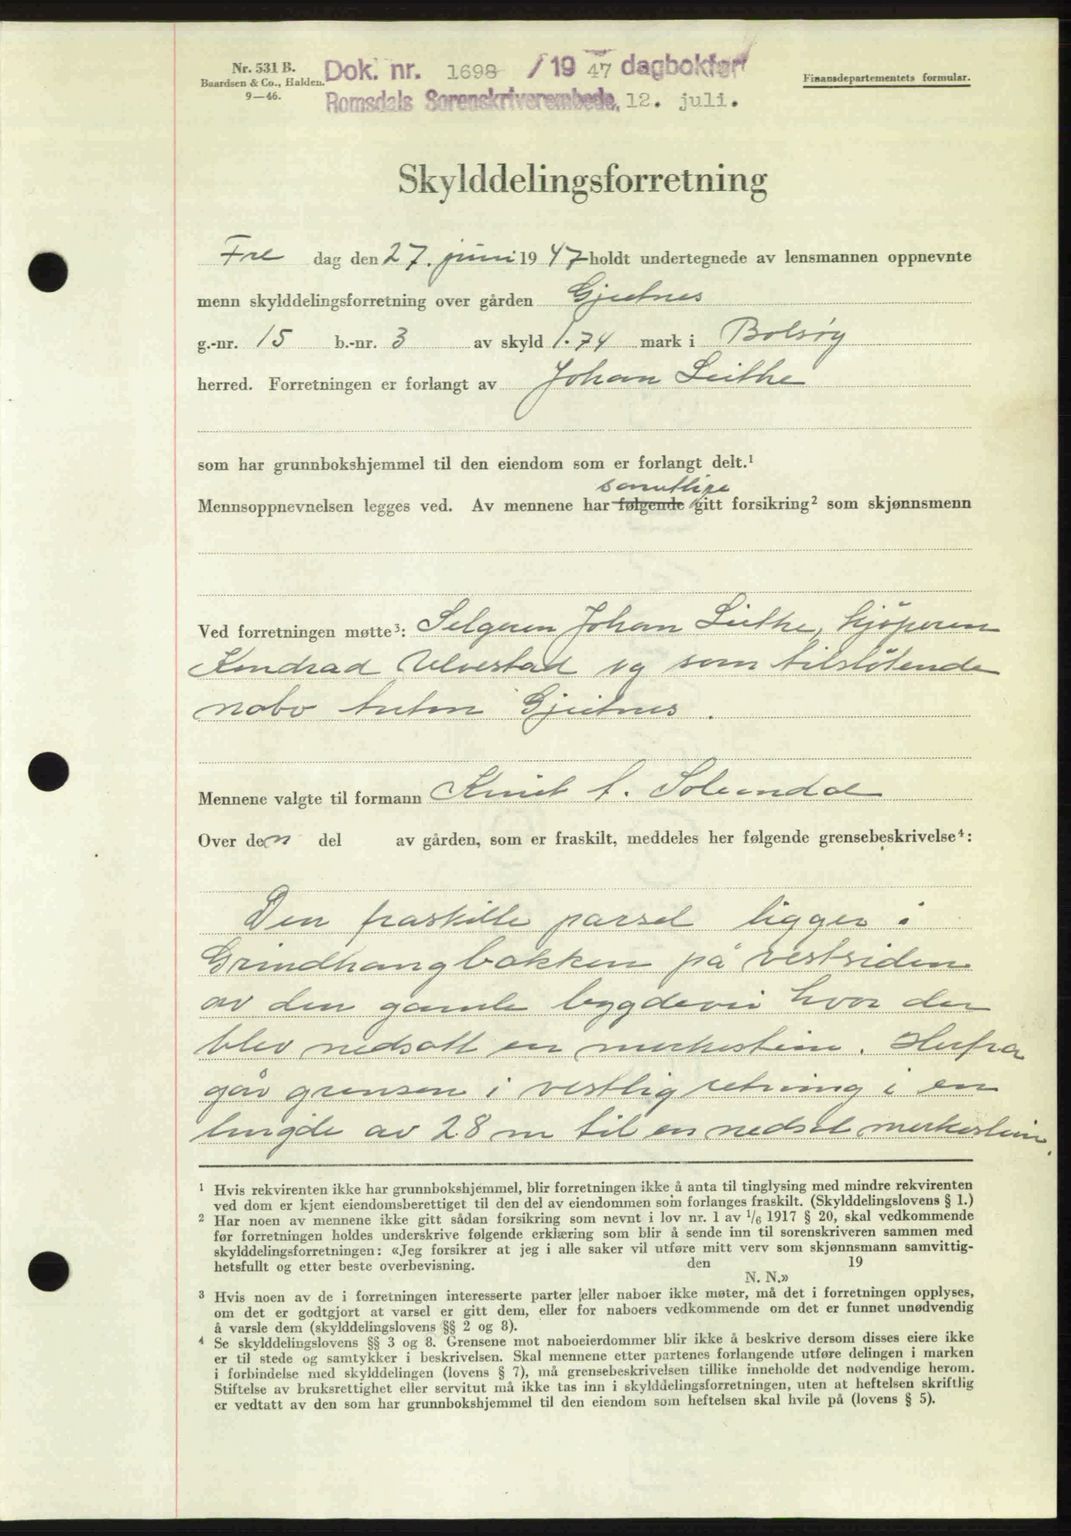 Nr. 531 B.
Baardsen & Co., Halden.
9—46.
Dok. nr. 1698 /19 47 dagbokført
Romsdals Sorenskriverembede, 12. juli.
Finansdepartementets formular.
Skylddelingsforretning
Fre dag den 27. juni 19 47 holdt undertegnede av lensmannen oppnevnte
menn skylddelingsforretning over gården Gjeitnes
g.-nr. 15 b.-nr. 3 av skyld 1.74 mark i Bolsøy
herred. Forretningen er forlangt av Johan Leithe
som har grunnbokshjemmel til den eiendom som er forlangt delt.¹
samtlige
Mennsoppnevnelsen legges ved. Av mennene har følgende gitt forsikring² som skjønnsmenn
Ved forretningen møtte³: Selgeren Johan Leithe, kjöperen
Kondrad Ulvestad og som tilstøtende
nabo Anton Gjeitnes.
Mennene valgte til formann Knut A. Solemdal
Over den del av gården, som er fraskilt, meddeles her følgende grensebeskrivelse⁴:
Den fraskilte parsel ligger i
Grindhaugbakken på vestsiden
av den gamle bygdevei hvor der
blev nedsatt en merkestein. Herfra
går grensen i vestlig retning i en
lengde av 28 m til en nedsat merkestein.
¹ Hvis rekvirenten ikke har grunnbokshjemmel, blir forretningen ikke å anta til tinglysing med mindre rekvirenten
ved dom er kjent eiendomsberettiget til den del av eiendommen som forlanges fraskilt. (Skylddelingslovens § 1.)
² Har noen av mennene ikke gitt sådan forsikring som nevnt i lov nr. 1 av 1/6 1917 § 20, skal vedkommende
før forretningen holdes underskrive følgende erklæring som blir å sende inn til sorenskriveren sammen med
skylddelingsforretningen: «Jeg forsikrer at jeg i alle saker vil utføre mitt verv som skjønnsmann samvittig-
hetsfullt og etter beste overbevisning. den 19
N. N.»
³ Hvis noen av de i forretningen interesserte parter eller naboer ikke møter, må det i forretningen opplyses,
om det er godtgjort at varsel er gitt dem, eller for naboers vedkommende om det er funnet unødvendig
å varsle dem (skylddelingslovens §§ 2 og 8).
⁴ Se skylddelingslovens §§ 3 og 8. Grensene mot naboeierdommer blir ikke å beskrive dersom disses eiere ikke
er til stede og samtykker i beskrivelsen. Skal mennene etter partenes forlangende utføre delingen i marken
i forbindelse med skylddelingen (lovens § 7), må grensebeskrivelsen tillike inneholde det nødvendige herom.
Stiftelse av bruksrettighet eller servitut må ikke tas inn i skylddelingsforretningen, uten at heftelsen skriftlig
er vedtatt av den som har grunnbokshjemmel til den eiendom som heftelsen skal hvile på (lovens § 5).